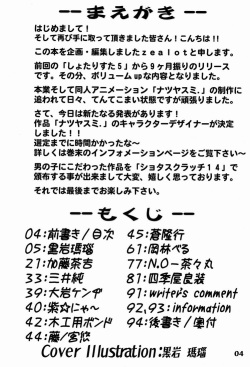 --まえがき--
はじめまして！
そして再び手に取って頂きました皆さん！こんちは!!
この本を企画・編集しましたzealotと申します。
前回の「しょたりすた5」から9ヶ月振りのリリース
です。その分、ボリュームupな内容となりました。
本業そして同人アニメーション「ナツヤスミ.」の制作に
追われて日々、てんてこまい状態ですが頑張りました。
さて、今日は新たなる発表があります！
作品「ナツヤスミ.」のキャラクターデザイナーが決定
しました！！
選定までに時間かかったな～
詳しくは巻末のインフォメーションページをご覧下さい～
男の子にこだわった作品を「ショタスクラッチ14」で
頒布する事が出来まして大変、嬉しく思っております。
それでは最後までお楽しみ下さい。
--もくじ--
04:前書き/目次
05:黒岩瑪瑙
21:加藤茶吉
33:三井純
39:大岩ケンヂ
40:紫☆にゃ～
42:木工用ボンド
44:藤/宏悠
45:蒼隆行
61:岡林べる
77:N.O-茶々丸
81:四季屋良装
91:writer's comment
92,93:information
94:後書き/奥付
Cover Illustration:黒岩 瑪瑙
04